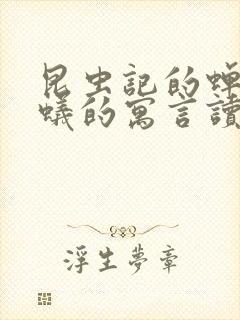 昆虫記的蟬
蟻的寓言讀
浮生夢章